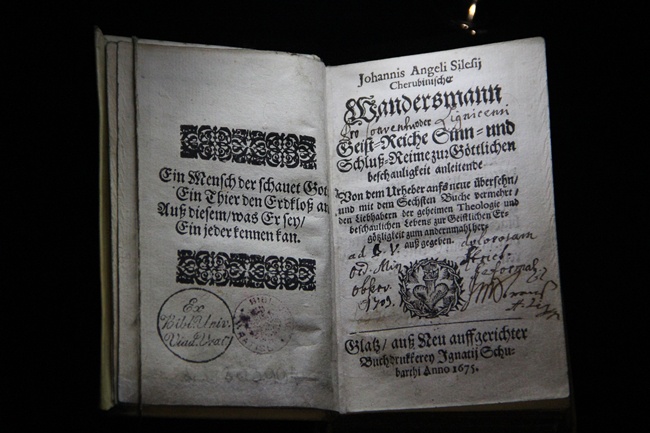 Ein Mensch der schauet Got
Ein Thier den Erdkloß an
Auß diesem/was Er sey/
Ein jeder kennen kan.
Ex
Bibl. Univ.
Viad. Vrat.
BIBL
Johannis Angeli Silesij
Cherubinischer
Wandersmann
oder
Geist-Reiche Sinn- und
Schluß-Reime zur Göttlichen
beschauligkeit anleitende
Von dem Urheber aufs neue übersehn/
und mit dem Sechsten Buche vermehrt/
den Liebhabern der geheimen Theologie und
beschaulichen Lebens zur Geistlichen Er-
götzligkeit zum andernmahl her-
auß gegeben.
Pro Conventu Lignicensi
ad B. V. dolorosam
Ord. Min.
Obser.
1703.
Glatz/ auß Neu auffgerichter
Buchdrukkerey Ignatij Schu-
barthi Anno 1675.